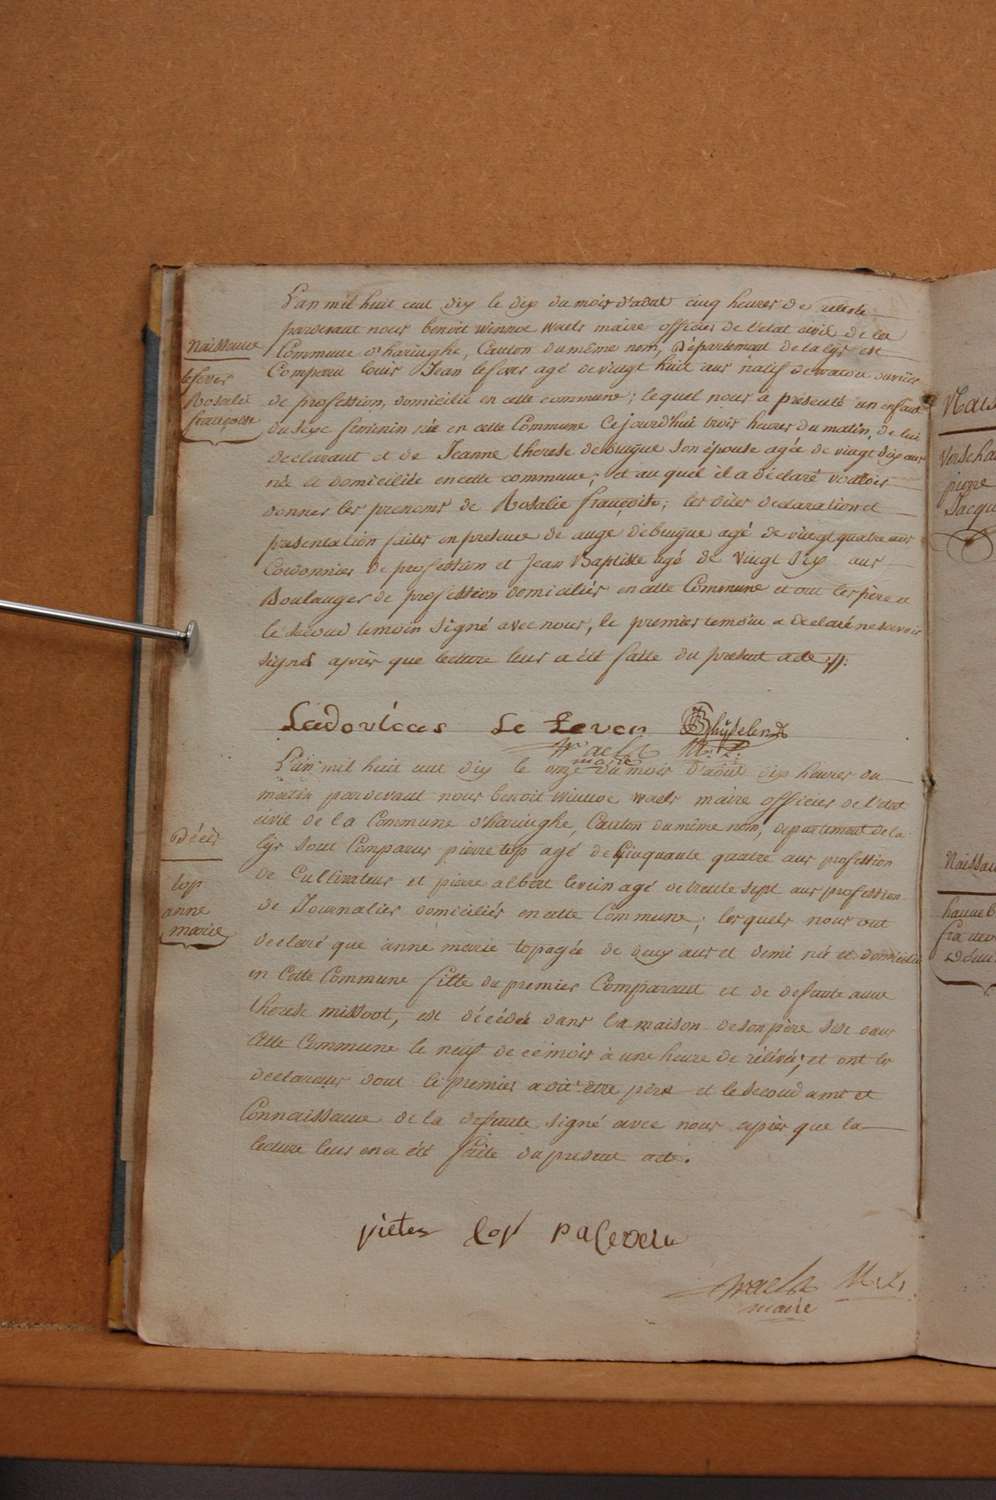 L'an mil huit cent dix le dix du mois d'aout cinq heures de relevée
pardevant nous benoit Winnoc Waels maire officier de l'etat civil de la
Commune d'haringhe, Canton du même nom, Département de la lys est
Comparu louis Jean lefever agé de vingt huit ans natif de watou ouvrier
de profession, domicilié en cette commune; lequel nous a presenté un enfant
du sexe féminin née en cette Commune Cejourd'hui trois heures du matin, de lui
declarant et de Jeanne therese debuyue son épouse agée de vingt dix ans
née et domicilié en cette commune; et au quel il a déclaré vouloir
donner les prenoms de Rosalie françoise; les dites declaration et
presentation faites en presence de ange debuyue agé de vingt quatre ans
Cordonnier de profession et Jean Baptiste agé de vingt six ans
Boulanger de profession domiciliés en cette Commune et ont les père et
le second temoin signé avec nous, le premier temoin a declaré ne savoir
signer après que lecture leur a été faite du present acte
Naissance
lefever
Rosalie
françoise
Ludovicus Le Fever
Waels M. L.
maire
L'an mil huit cent dix le onze du mois d'aout dix heures du
matin pardevant nous benoit Winnoc Waels maire officier de l'etat
civil de la Commune d'haringhe, Canton du même nom, departement de la
lys sont Comparus pierre top agé de Cinquante quatre ans profession
de Cultivateur et pierre albert leve agé de trente sept ans profession
de Journalier domiciliés en cette Commune; lesquels nous ont
declaré que anne marie top agée de deux ans et demi née et domiciliée
en Cette Commune fille du premier Comparant et de defunte anne
therese missoot, est décédée dans la maison de son père sise dans
Cette Commune le neuf de ce mois à une heure de rélévée; et ont les
declarans dont le premier a dit être père et le second ami et
Connaissance de la defunte signé avec nous après que la
lecture leur en a été faite du present acte.
Décès
top
anne
marie
pieter top
Waels M. L.
maire
pierre
Jacqu
Naissan